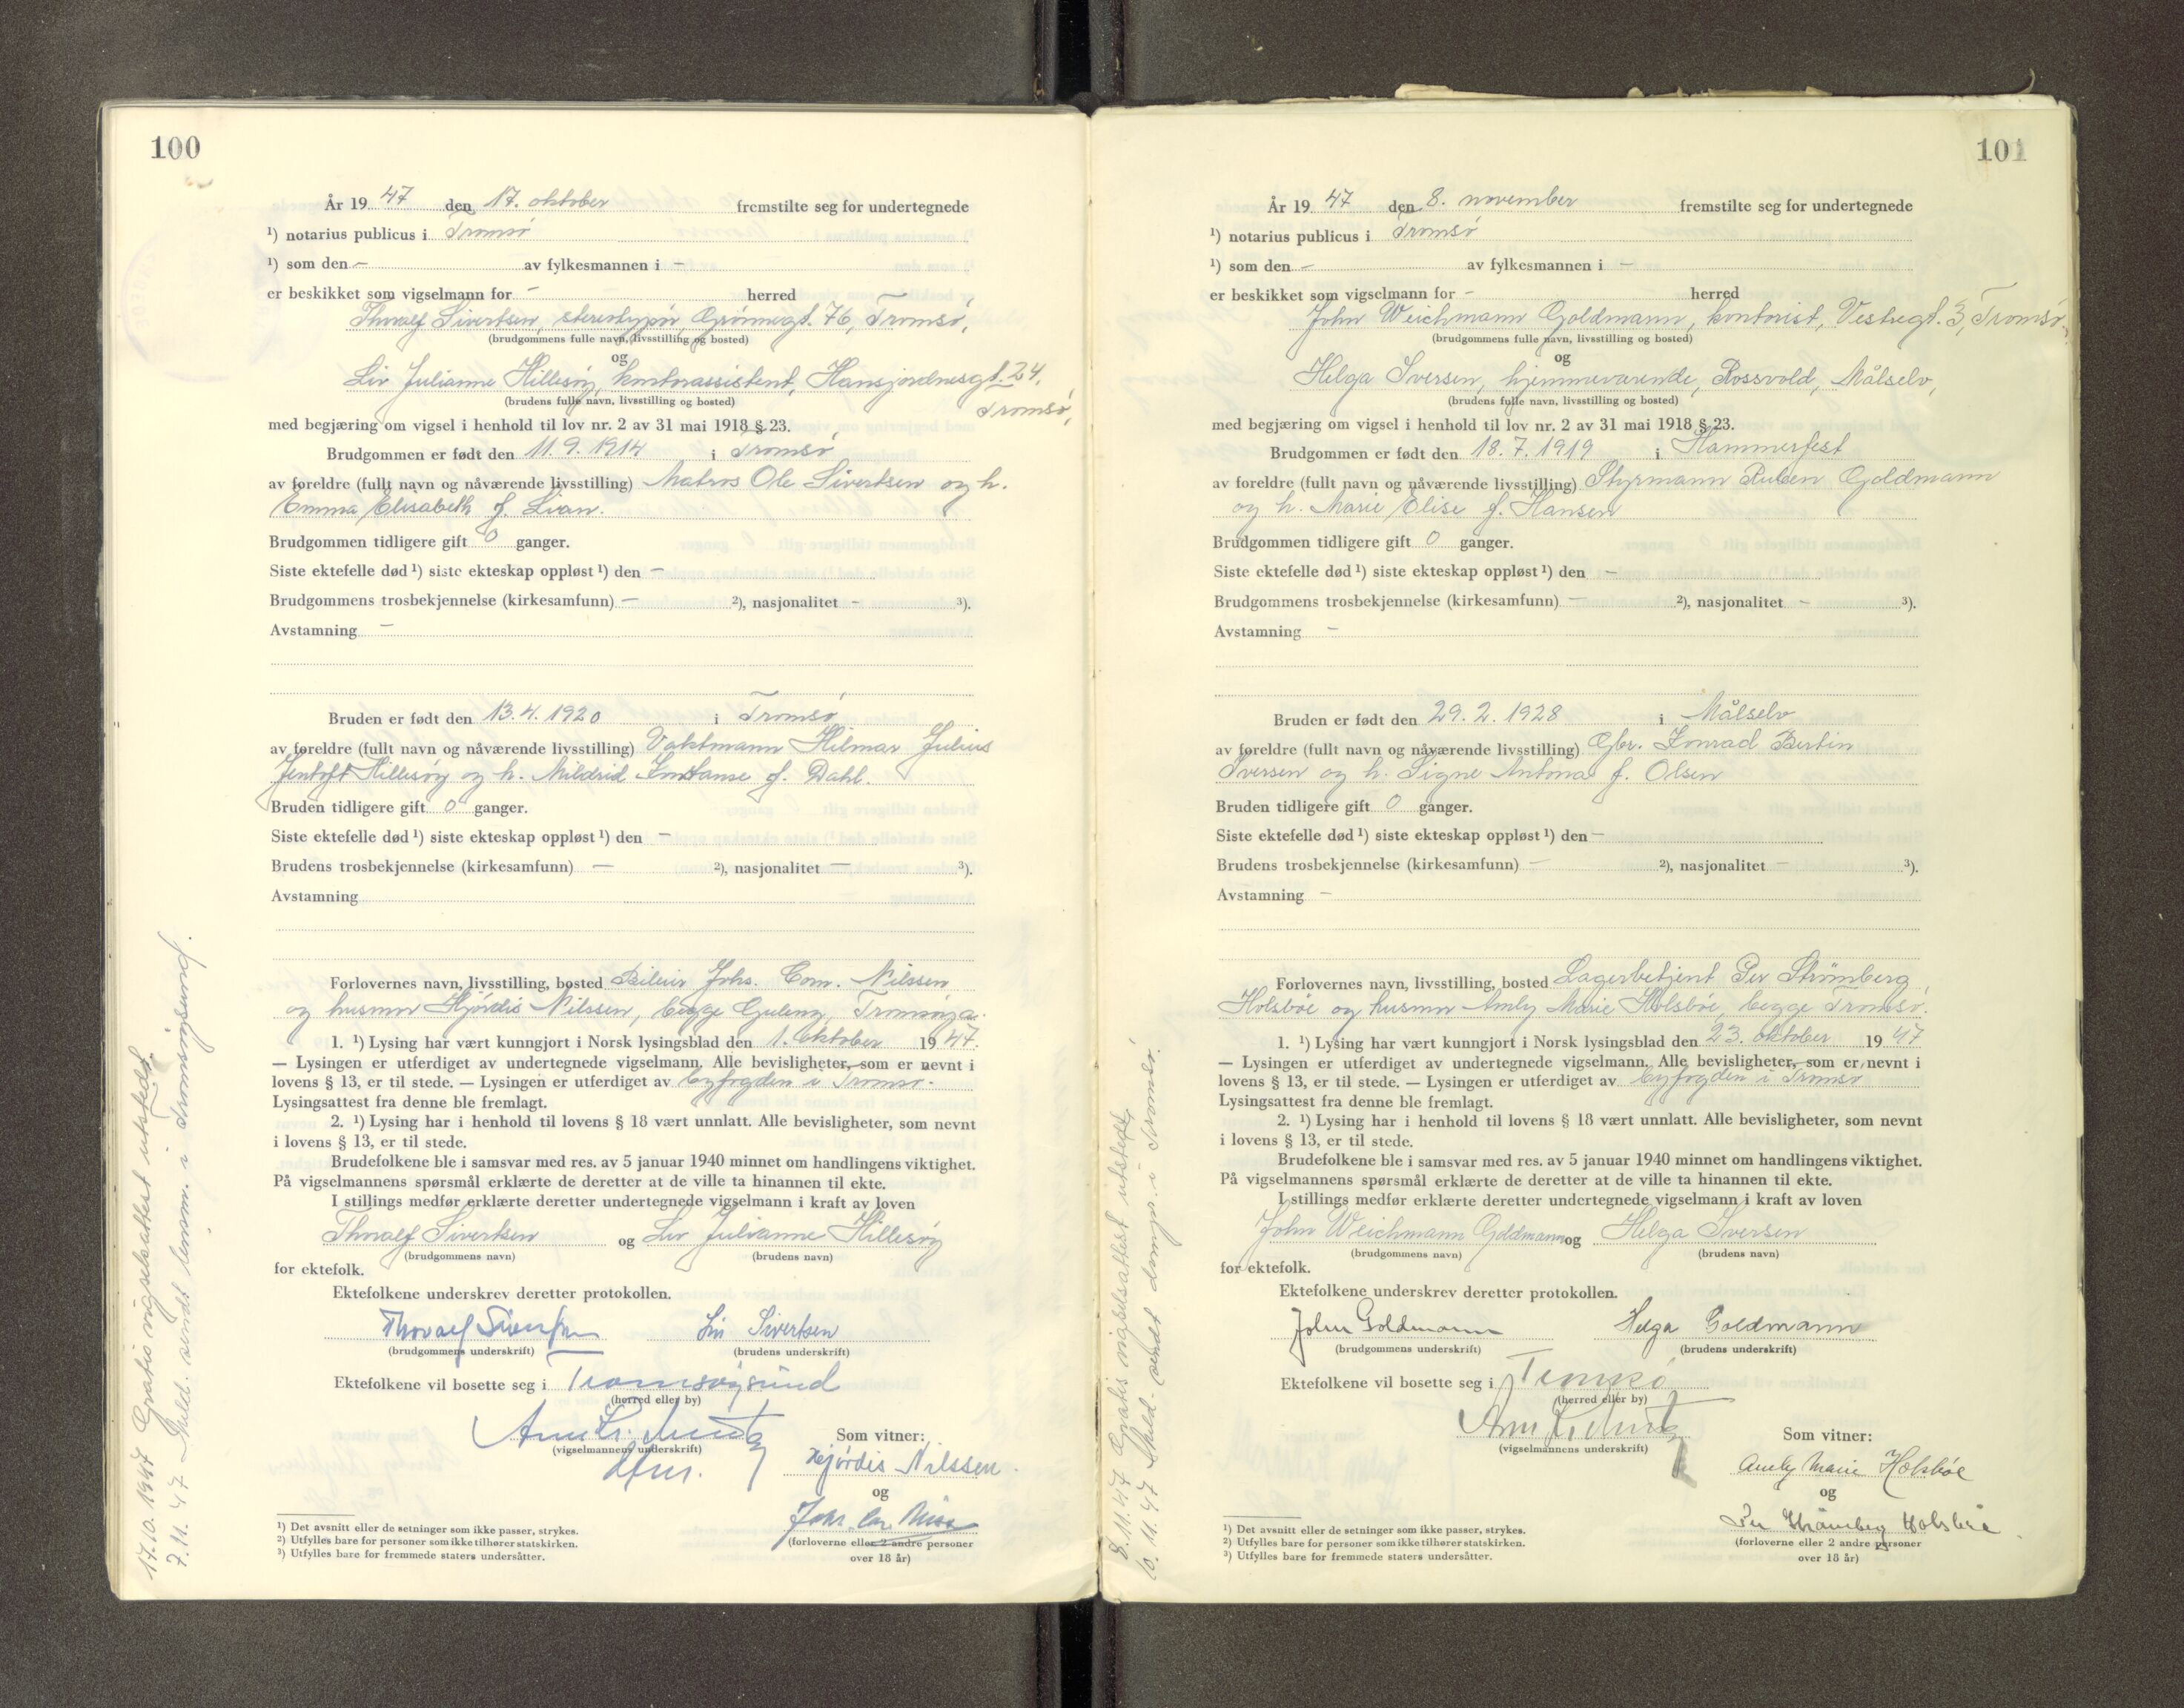 100
År 19 47 den 17. oktober fremstilte seg for undertegnede
¹) notarius publicus i Tromsø
¹) som den – av fylkesmannen i –
er beskikket som vigselmann for – herred
Thoralf Sivertsen, stereotypør, Grønnegt. 76, Tromsø,
(brudgommens fulle navn, livsstilling og bosted)
og
Liv Julianne Hillesøy, kontorassistent, Hansjordnesgt. 24,
(brudens fulle navn, livsstilling og bosted)
Tromsø,
med begjæring om vigsel i henhold til lov nr. 2 av 31 mai 1918 § 23.
Brudgommen er født den 11. 9. 1914 i Tromsø
av foreldre (fullt navn og nåværende livsstilling) Matros Ole Sivertsen og h.
Emma Elisabeth f. Lian.
Brudgommen tidligere gift 0 ganger.
Siste ektefelle død ¹) siste ekteskap oppløst ¹) den –
Brudgommens trosbekjennelse (kirkesamfunn) – ²), nasjonalitet – ³).
Avstamning –
Bruden er født den 13. 4. 1920 i Tromsø
av foreldre (fullt navn og nåværende livsstilling) Vaktmann Hilmar Julius
Jentoft Hillesøy og h. Mildrid Konstanse f. Dahl.
Bruden tidligere gift 0 ganger.
Siste ektefelle død ¹) siste ekteskap oppløst ¹) den –
Brudens trosbekjennelse (kirkesamfunn) – ²), nasjonalitet – ³).
Avstamning
Forlovernes navn, livsstilling, bosted Bileier Johs. Corn. Nilssen
og husmor Hjørdis Nilssen, begge Gyleng, Tromsøya.
1. ¹) Lysing har vært kunngjort i Norsk lysingsblad den 1. oktober 19 47.
— Lysingen er utferdiget av undertegnede vigselmann. Alle bevisligheter, som er nevnt i
lovens § 13, er til stede. — Lysingen er utferdiget av byfogden i Tromsø.
Lysingsattest fra denne ble fremlagt.
2. ¹) Lysing har i henhold til lovens § 18 vært unnlatt. Alle bevisligheter, som nevnt
i lovens § 13, er til stede.
Brudefolkene ble i samsvar med res. av 5 januar 1940 minnet om handlingens viktighet.
På vigselmannens spørsmål erklærte de deretter at de ville ta hinannen til ekte.
I stillings medfør erklærte deretter undertegnede vigselmann i kraft av loven
Thoralf Sivertsen og Liv Julianne Hillesøy
(brudgommens navn) (brudens navn)
for ektefolk.
Ektefolkene underskrev deretter protokollen.
Thoralf Sivertsen Liv Sivertsen
(brudgommens underskrift) (brudens underskrift)
Ektefolkene vil bosette seg i Tromsøysund
(herred eller by)
(vigselmannens underskrift)
Som vitner:
Hjørdis Nilssen.
og
(forloverne eller 2 andre personer
over 18 år)
¹) Det avsnitt eller de setninger som ikke passer, strykes.
²) Utfylles bare for personer som ikke tilhører statskirken.
³) Utfylles bare for fremmede staters undersåtter.
17.10.1947 Gratis vigselsattest utstedt.
7.11.47 Meld. sendt lensm. i Tromsøysund.
101
År 19 47 den 8. november fremstilte seg for undertegnede
¹) notarius publicus i Tromsø
¹) som den – av fylkesmannen i –
er beskikket som vigselmann for – herred
John Weichmann Goldmann, kontorist, Vestregt. 3, Tromsø,
(brudgommens fulle navn, livsstilling og bosted)
og
Helga Iversen, hjemmeværende, Rossvold, Målselv,
(brudens fulle navn, livsstilling og bosted)
med begjæring om vigsel i henhold til lov nr. 2 av 31 mai 1918 § 23.
Brudgommen er født den 18. 7. 1919 i Hammerfest
av foreldre (fullt navn og nåværende livsstilling) Styrmann Ruben Goldmann
og h. Marie Elise f. Hansen
Brudgommen tidligere gift 0 ganger.
Siste ektefelle død ¹) siste ekteskap oppløst ¹) den –
Brudgommens trosbekjennelse (kirkesamfunn) – ²), nasjonalitet – ³).
Avstamning –
Bruden er født den 29. 2. 1928 i Målselv
av foreldre (fullt navn og nåværende livsstilling) Gbr. Konrad Bertin
Iversen og h. Signe Antona f. Olsen
Bruden tidligere gift 0 ganger.
Siste ektefelle død ¹) siste ekteskap oppløst ¹) den –
Brudens trosbekjennelse (kirkesamfunn) – ²), nasjonalitet – ³).
Avstamning –
Forlovernes navn, livsstilling, bosted Lagerbetjent Per Strømberg
Holsbøe og husmor Amly Marie Holsbøe, begge Tromsø.
1. ¹) Lysing har vært kunngjort i Norsk lysingsblad den 23. oktober 19 47
— Lysingen er utferdiget av undertegnede vigselmann. Alle bevisligheter, som er nevnt i
lovens § 13, er til stede. — Lysingen er utferdiget av byfogden i Tromsø
Lysingsattest fra denne ble fremlagt.
2. ¹) Lysing har i henhold til lovens § 18 vært unnlatt. Alle bevisligheter, som nevnt
i lovens § 13, er til stede.
Brudefolkene ble i samsvar med res. av 5 januar 1940 minnet om handlingens viktighet.
På vigselmannens spørsmål erklærte de deretter at de ville ta hinannen til ekte.
I stillings medfør erklærte deretter undertegnede vigselmann i kraft av loven
John Weichmann Goldmann og Helga Iversen
(brudgommens navn) (brudens navn)
for ektefolk.
Ektefolkene underskrev deretter protokollen.
John Goldmann Helga Goldmann
(brudgommens underskrift) (brudens underskrift)
Ektefolkene vil bosette seg i Tromsø
(herred eller by)
(vigselmannens underskrift)
Som vitner:
Amly Marie Holsbøe
og
Per Strømberg Holsbøe
(forloverne eller 2 andre personer
over 18 år)
¹) Det avsnitt eller de setninger som ikke passer, strykes.
²) Utfylles bare for personer som ikke tilhører statskirken.
³) Utfylles bare for fremmede staters undersåtter.
8.11.47 Gratis vigselsattest utstedt,
10.11.47 Meld. sendt i Tromsø.